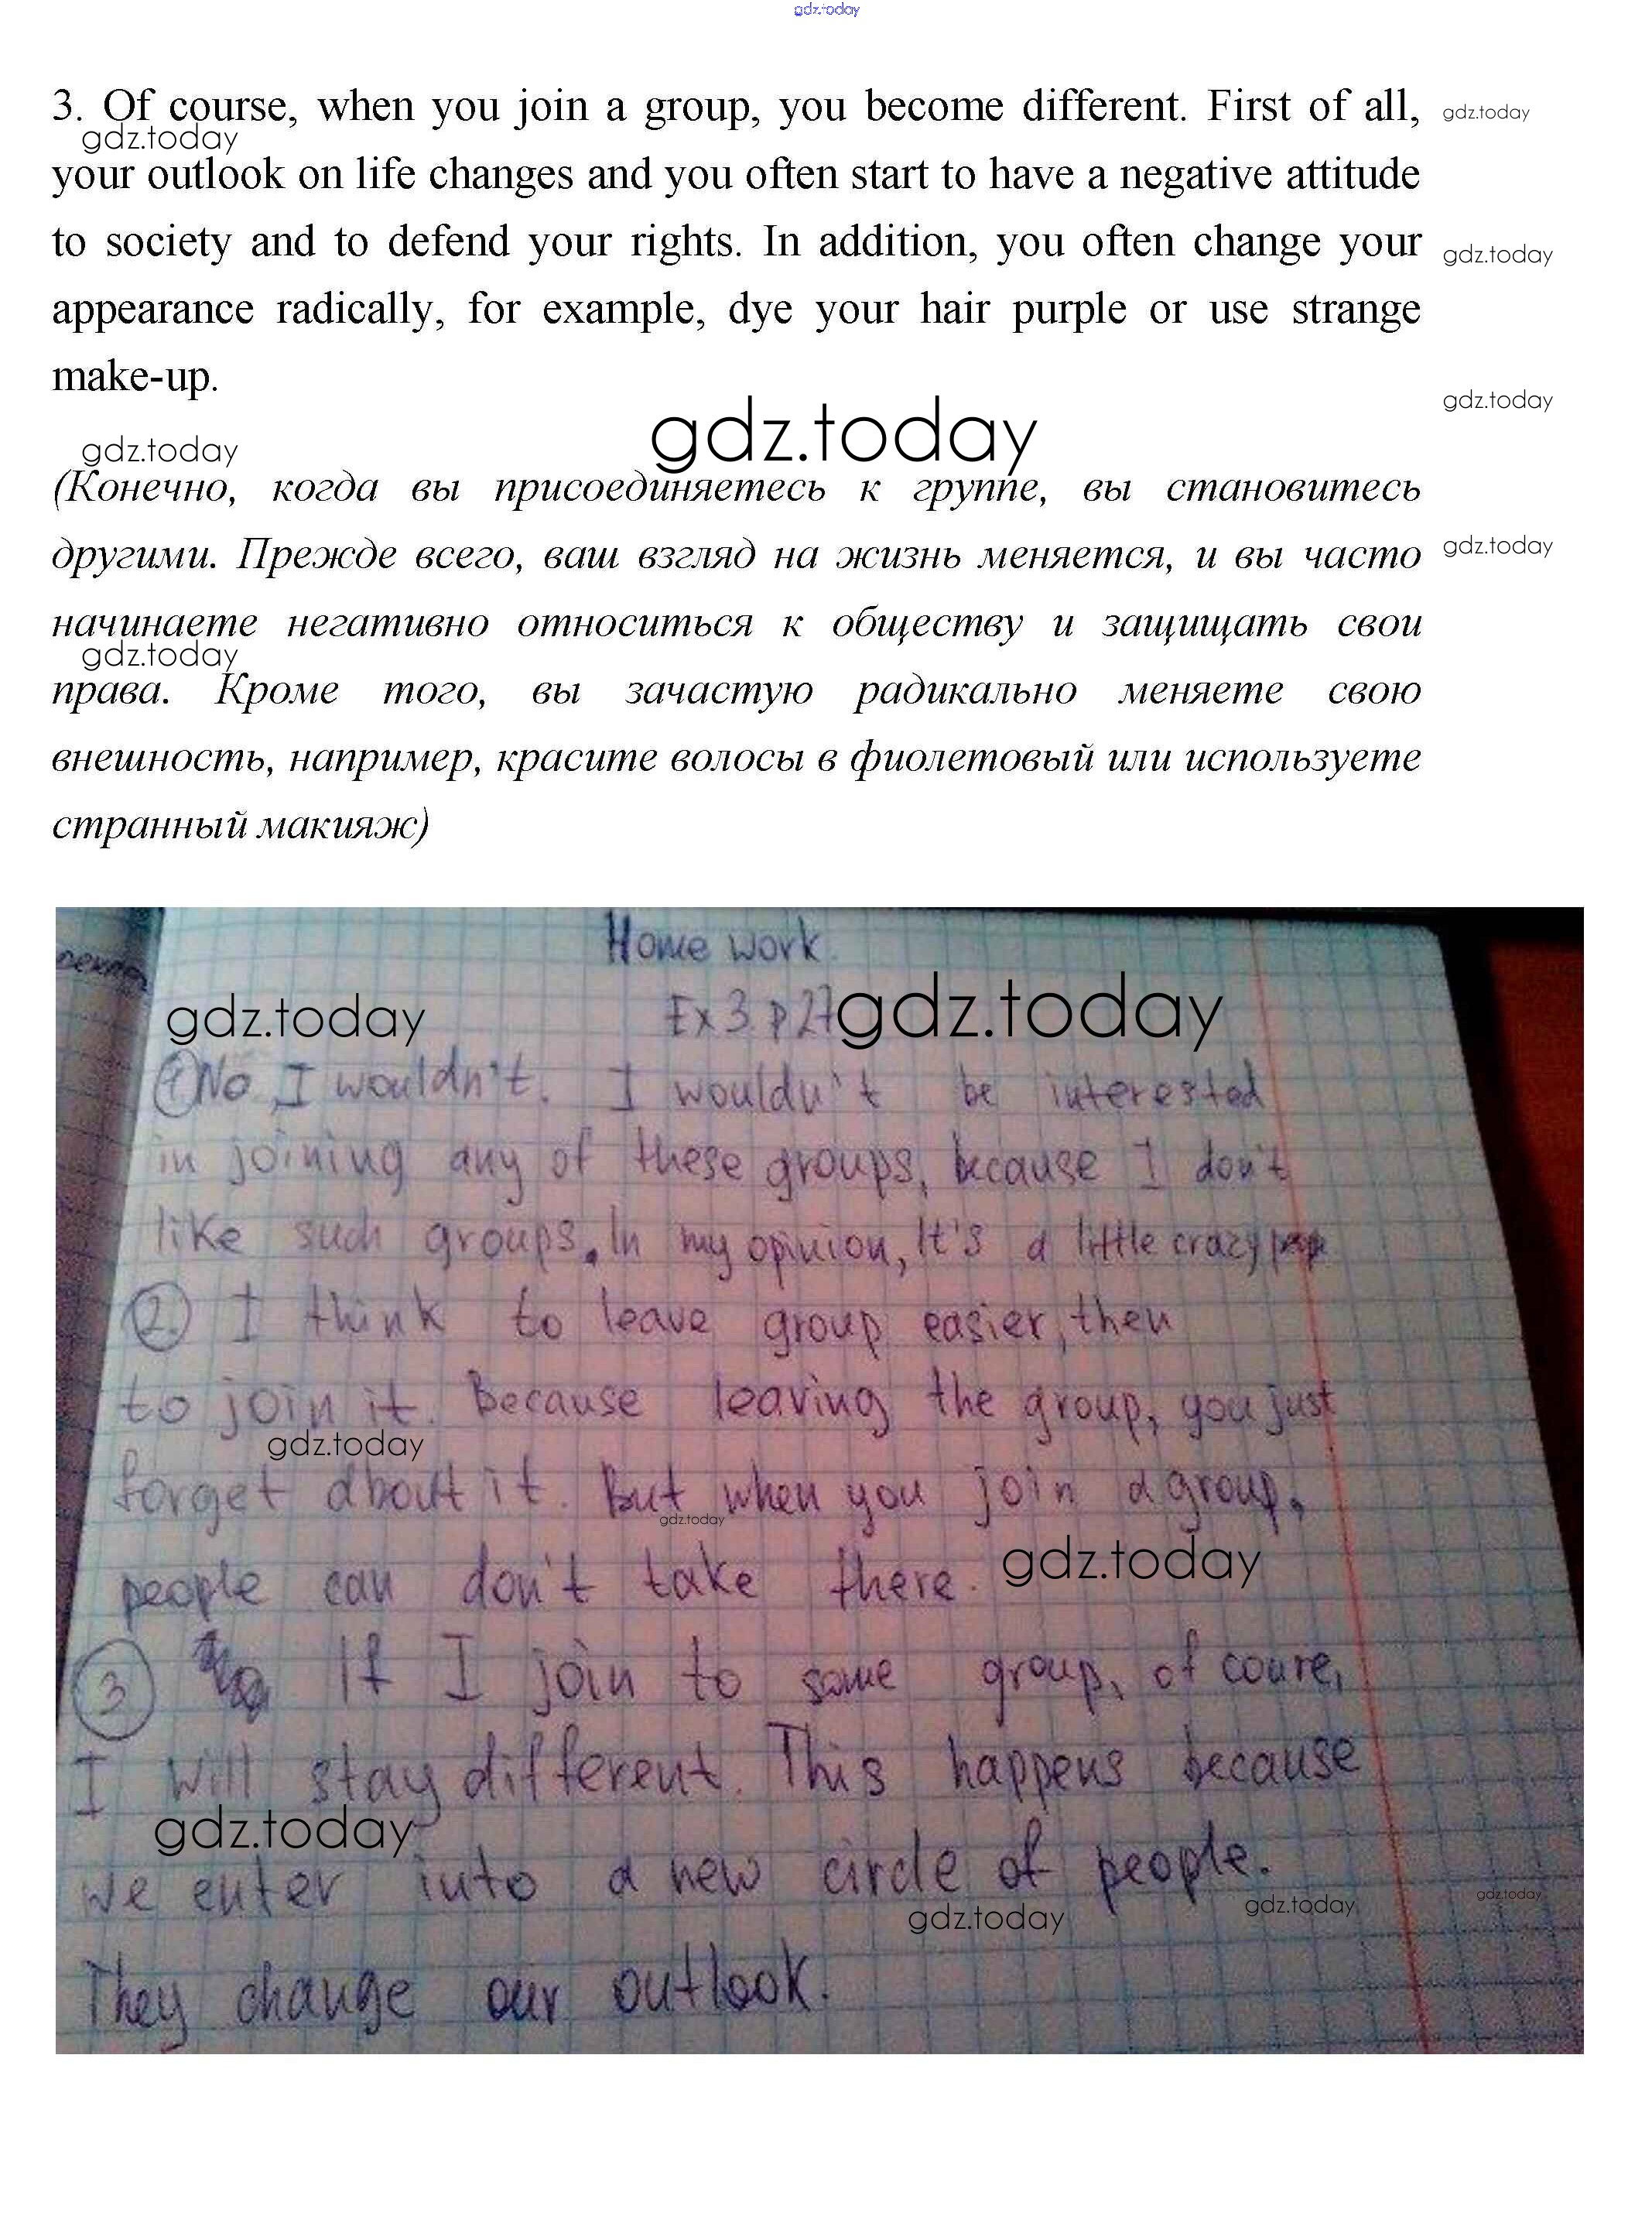 gdz.today
3. Of course, when you join a group, you become different. First of all,
gdz.today
gdz.today
your outlook on life changes and you often start to have a negative attitude
to society and to defend your rights. In addition, you often change your
gdz.today
appearance radically, for example, dye your hair purple or use strange
make-up.
gdz.today
gdz.today
gdz.today
(Конечно, когда вы присоединяетесь к группе, вы становитесь
другими. Прежде всего, ваш взгляд на жизнь меняется, и вы часто
gdz.today
начинаете негативно относиться к обществу и защищать свои
gdz.today
права. Кроме того, вы зачастую радикально меняете свою
внешность, например, красите волосы в фиолетовый или используете
странный макияж)
Home work.
gdz.today
Ex 3 p 27
gdz.today
1 No, I wouldn't. I wouldn't be interested
in joining any of these groups, because I don't
like such groups. In my opinion, It's a little crazy
2. I think to leave group easier, then
to join it. Because leaving the group, you just
gdz.today
forget about it. But when you join a group,
gdz.today
people can don't take there.
gdz.today
3 If I join to some group, of coure,
I will stay different. This happens because
gdz.today
we enter into a new circle of people.
gdz.today
gdz.today
gdz.today
They change our outlook.